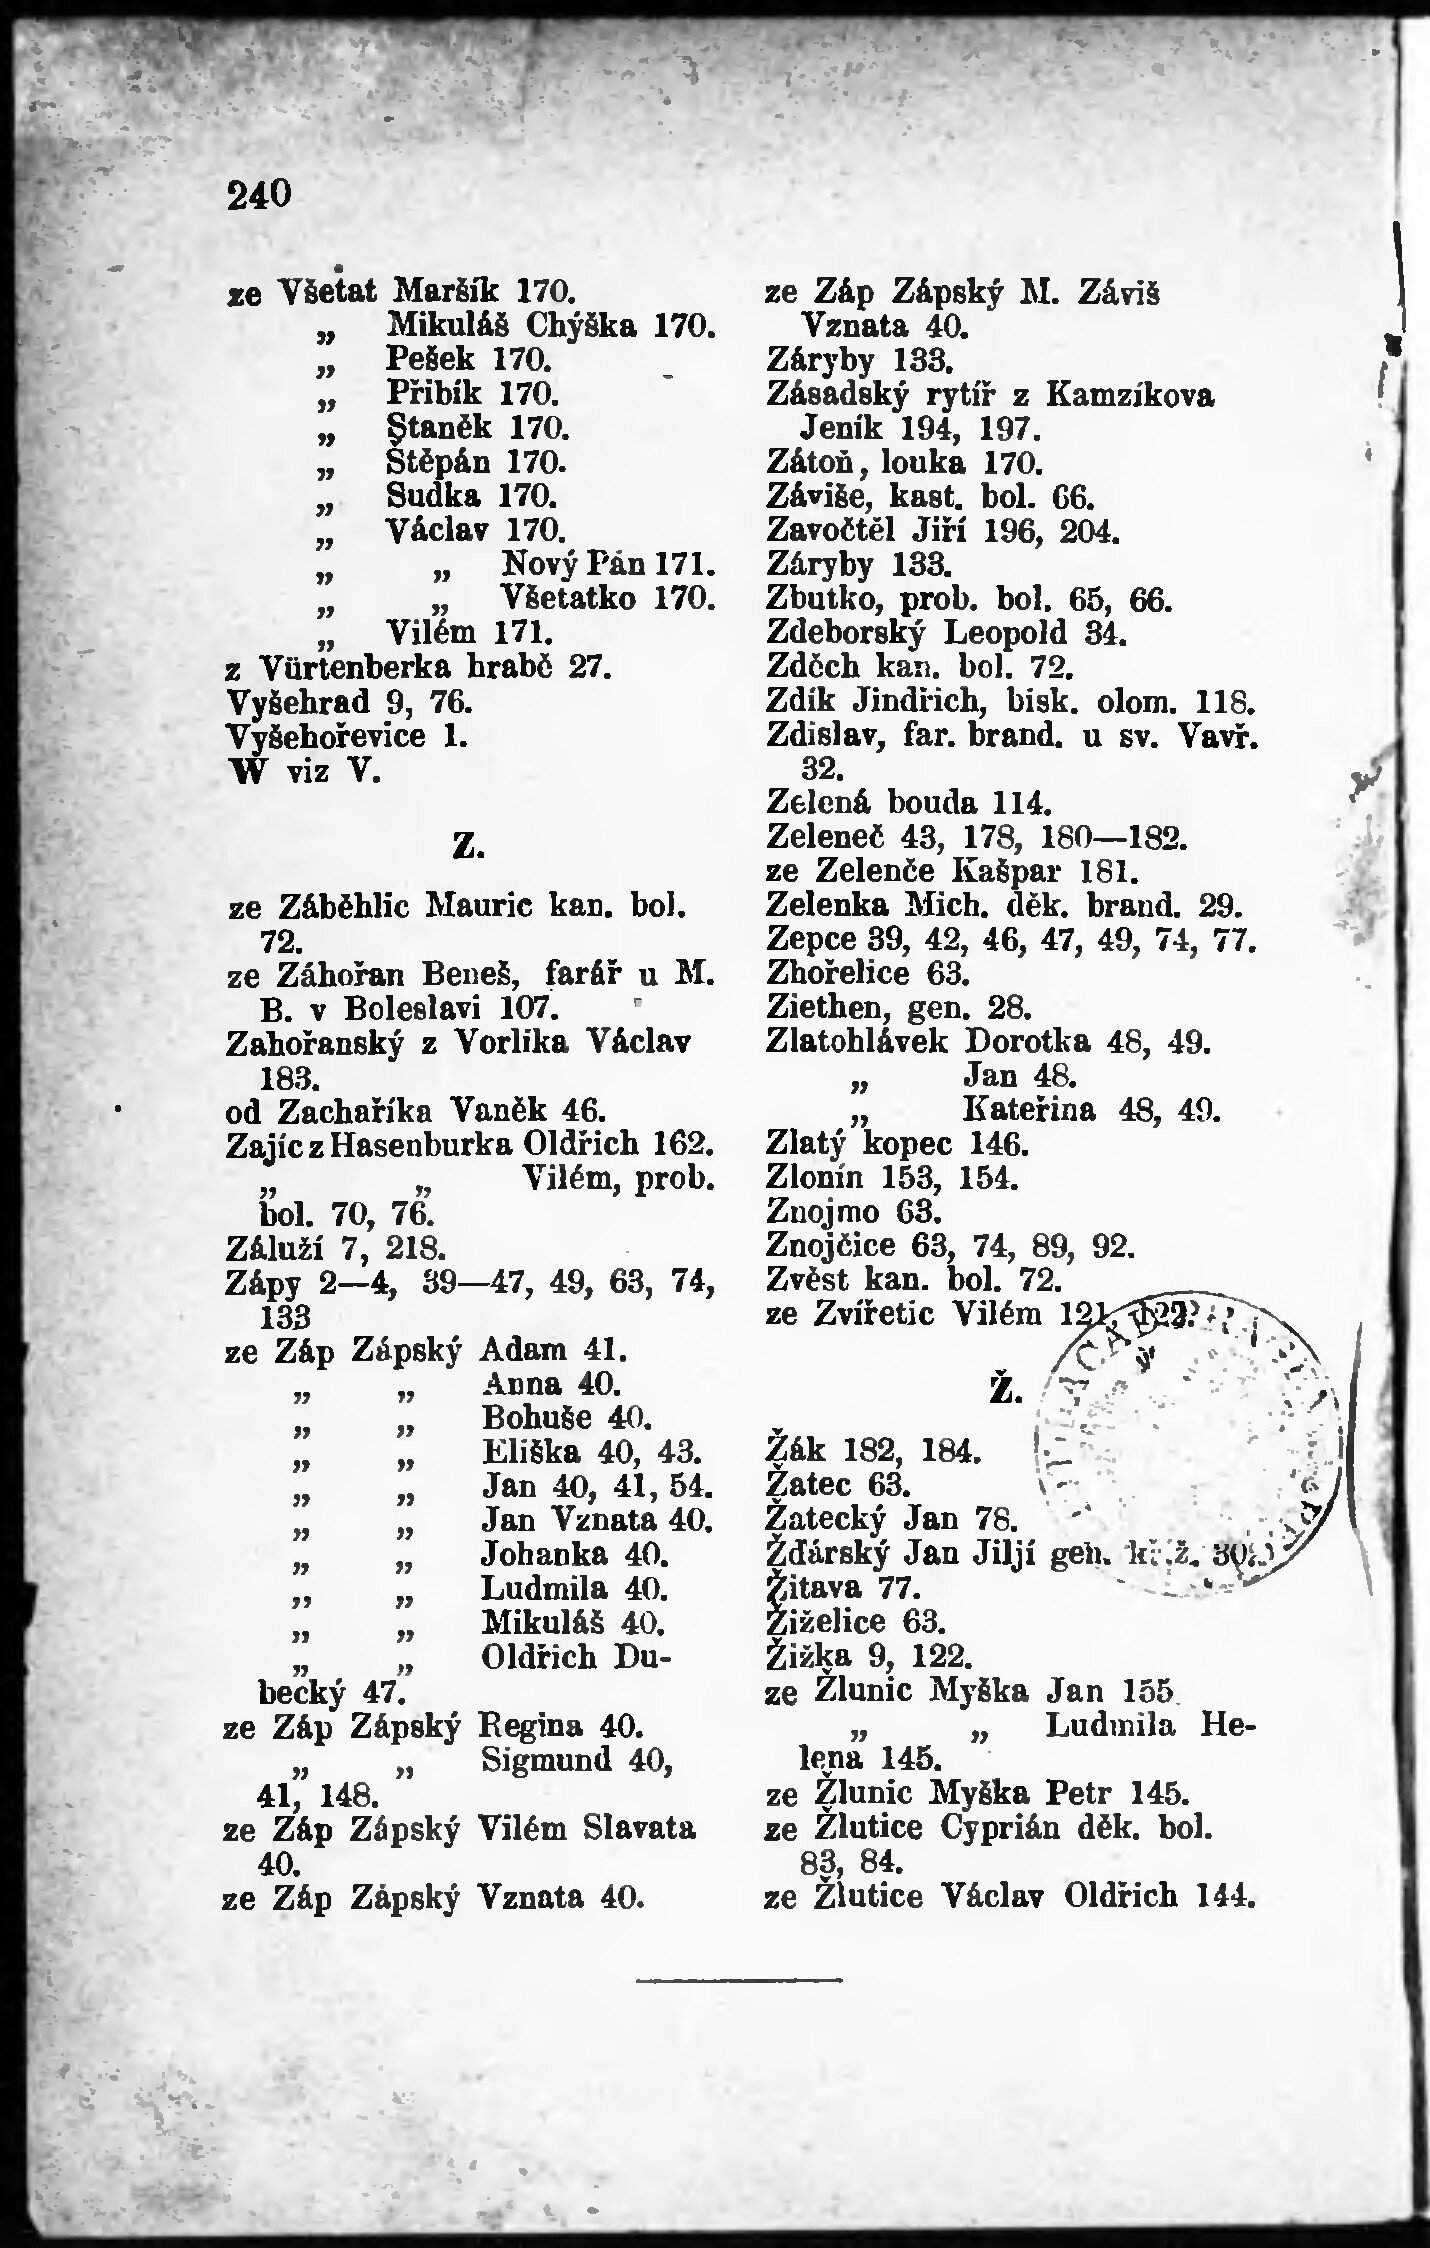 240
ze Všetat Maršík 170.
„ Mikuláš Chýška 170.
„ Pešek 170.
„ Přibík 170.
„ Staněk 170.
„ Štěpán 170.
„ Sudka 170.
„ Václav 170.
„ „ Nový Pán 171.
„ „ Všetatko 170.
„ Vilém 171.
z Vürtenberka hrabě 27.
Vyšehrad 9, 76.
Vyšehořevice 1.
W viz V.
Z.
ze Záběhlic Mauric kan. bol.
72.
ze Záhořan Beneš, farář u M.
B. v Boleslavi 107.
Zahořanský z Vorlika Václav
183.
od Zachaříka Vaněk 46.
Zajíc z Hasenburka Oldřich 162.
„ „ Vilém, prob.
bol. 70, 76.
Záluží 7, 218.
Zápy 2—4, 39—47, 49, 63, 74,
133
ze Záp Zápský Adam 41.
„ „ Anna 40.
„ „ Bohuše 40.
„ „ Eliška 40, 43.
„ „ Jan 40, 41, 54.
„ „ Jan Vznata 40.
„ „ Johanka 40.
„ „ Ludmila 40.
„ „ Mikuláš 40.
„ „ Oldřich Du-
becký 47.
ze Záp Zápský Regina 40.
„ „ Sigmund 40,
41, 148.
ze Záp Zápský Vilém Slavata
40.
ze Záp Zápský Vznata 40.
ze Záp Zápský M. Záviš
Vznata 40.
Záryby 133.
Zásadský rytíř z Kamzíkova
Jeník 194, 197.
Zátoň, louka 170.
Záviše, kast. bol. 66.
Zavočtěl Jiří 196, 204.
Záryby 133.
Zbutko, prob. bol. 65, 66.
Zdeborský Leopold 34.
Zděch kan. bol. 72.
Zdík Jindřich, bisk. olom. 118.
Zdislav, far. brand. u sv. Vavř.
32.
Zelená bouda 114.
Zeleneč 43, 178, 180—182.
ze Zelenče Kašpar 181.
Zelenka Mich. děk. brand. 29.
Zepce 39, 42, 46, 47, 49, 74, 77.
Zhořelice 63.
Ziethen, gen. 28.
Zlatohlávek Dorotka 48, 49.
„ Jan 48.
„ Kateřina 48, 49.
Zlatý kopec 146.
Zlonín 153, 154.
Znojmo 63.
Znojčice 63, 74, 89, 92.
Zvěst kan. bol. 72.
ze Zvířetic Vilém 121, 122.
Ž.
Žák 182, 184.
Žatec 63.
Žatecký Jan 78.
Žďárský Jan Jiljí gen. kř.ž. 30.
Žitava 77.
Žiželice 63.
Žižka 9, 122.
ze Žlunic Myška Jan 155.
„ „ Ludmila He-
lena 145.
ze Žlunic Myška Petr 145.
ze Žlutice Cyprián děk. bol.
83, 84.
ze Žlutice Václav Oldřich 144.